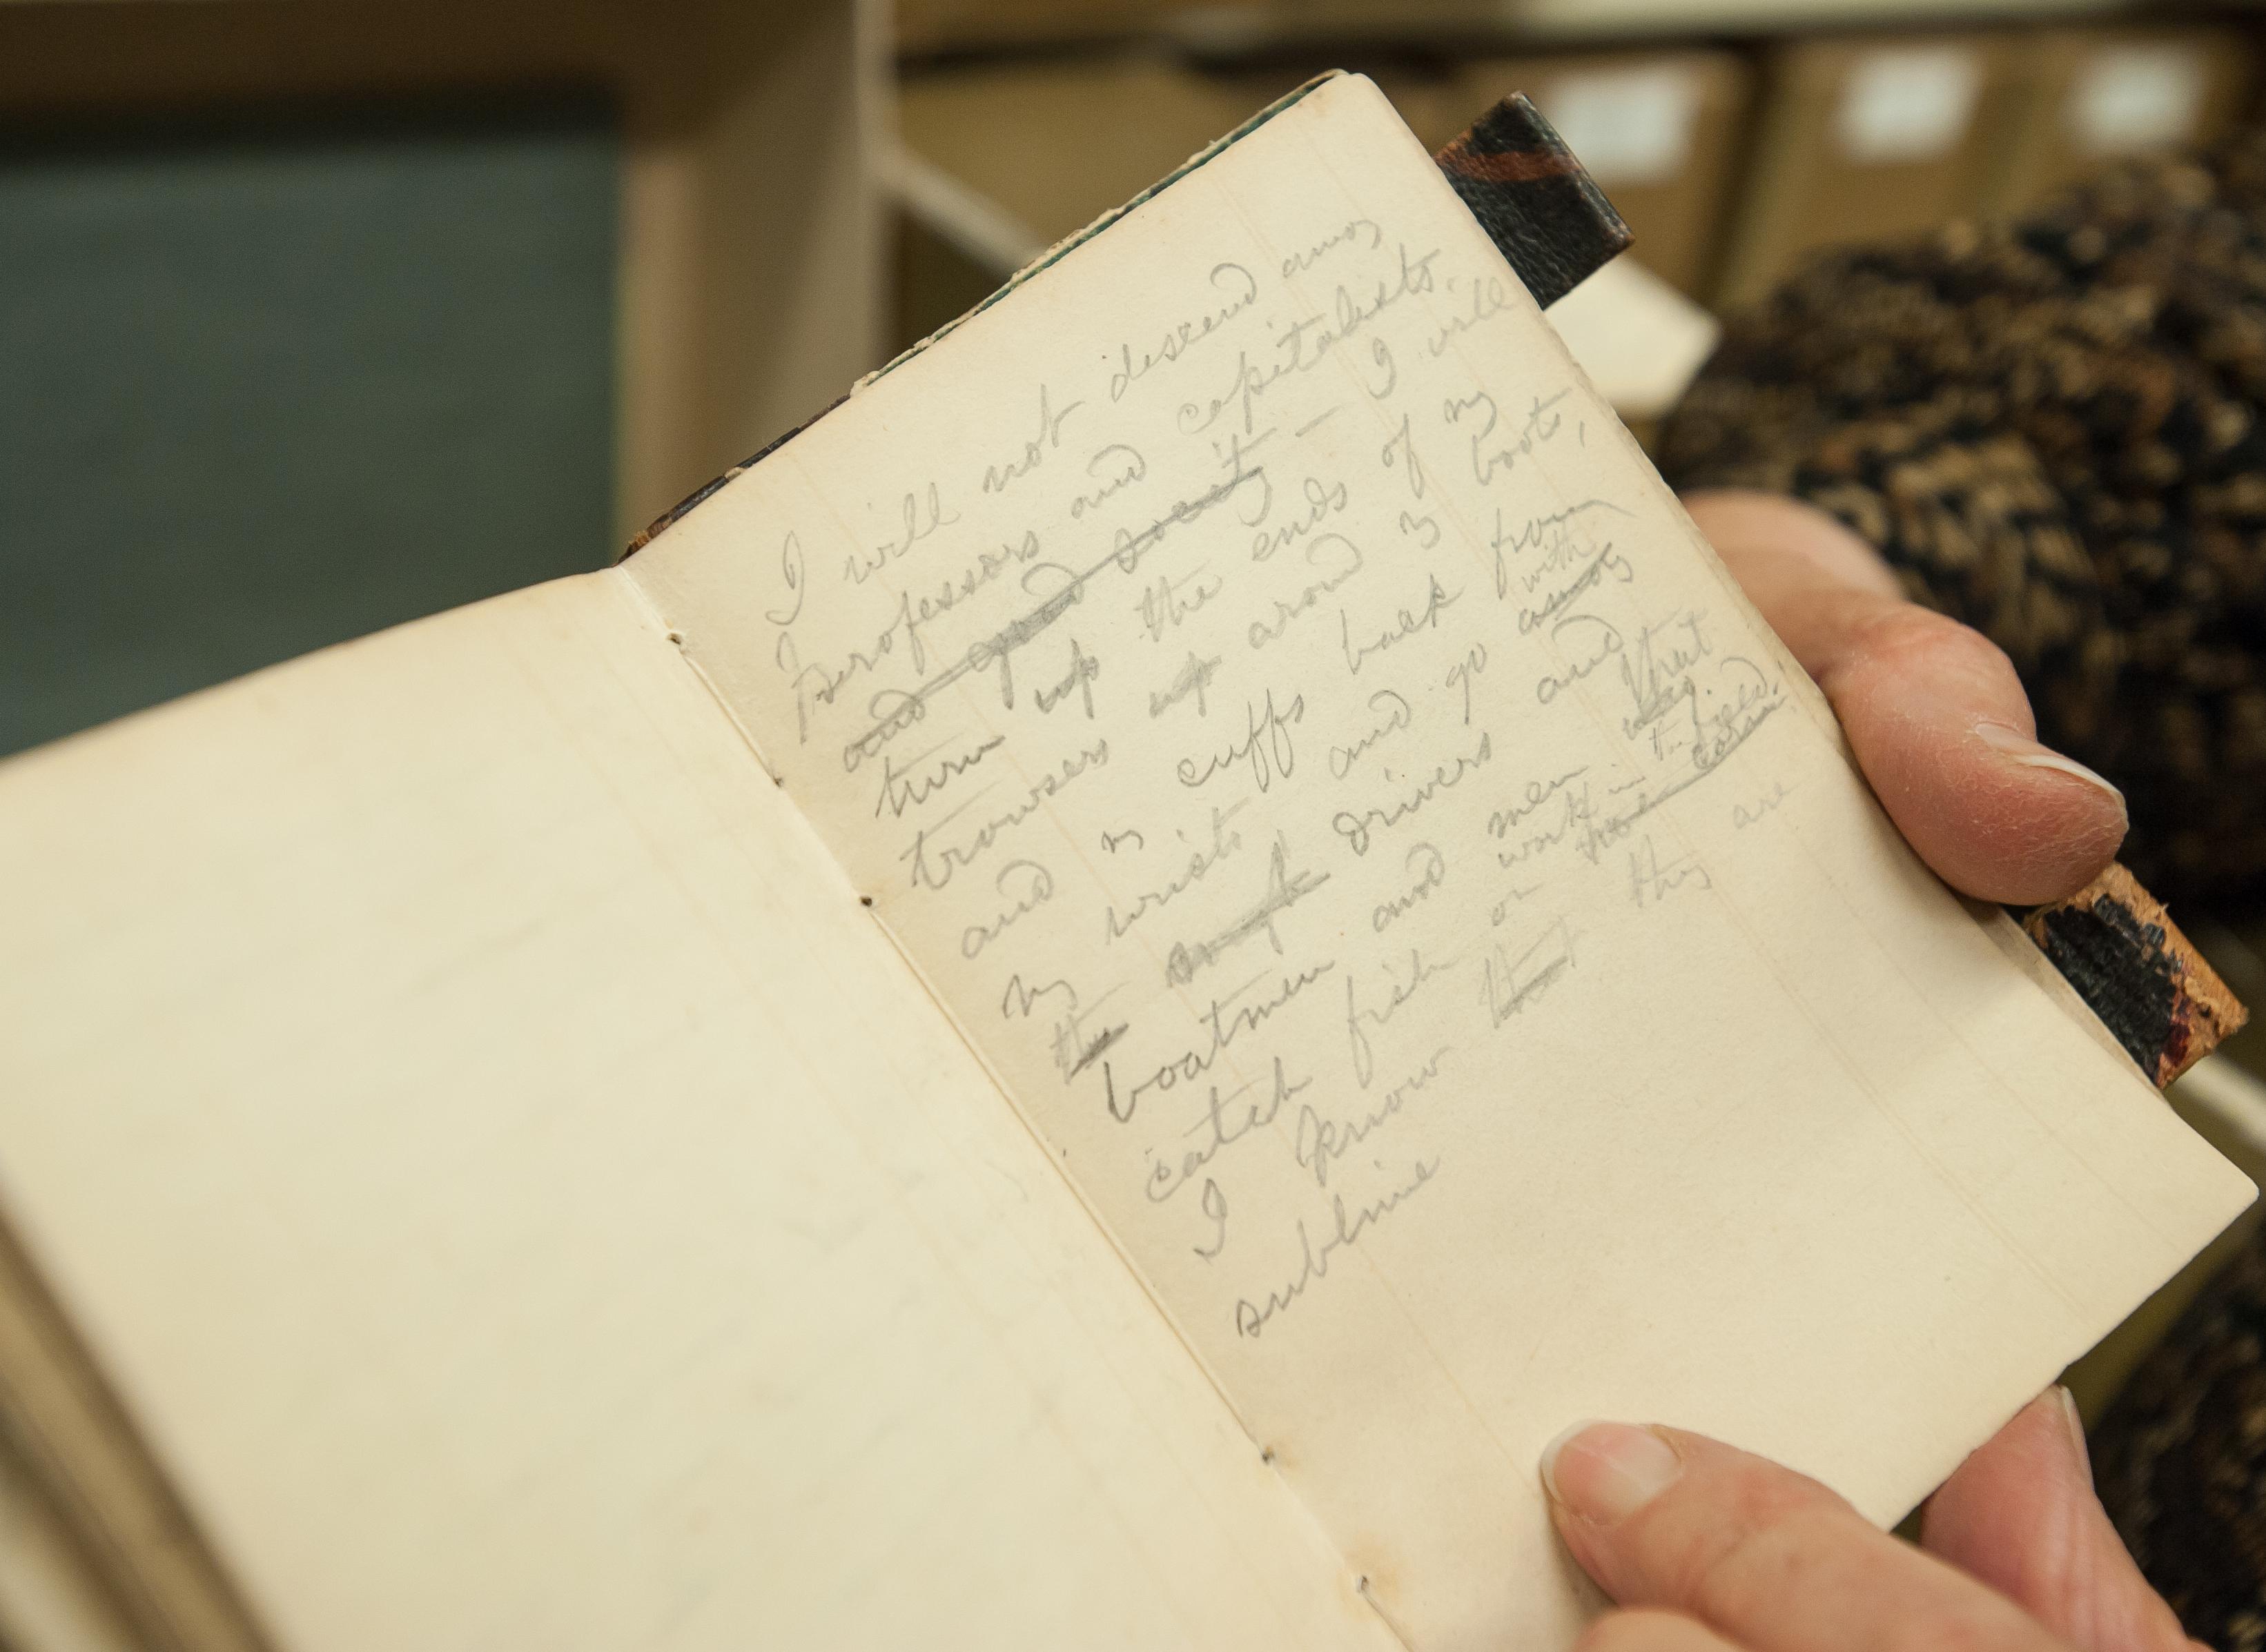 I will not descend among
professors and capitalists.
and good society — I will
turn up the ends of my
trowsers up around my boots,
and my cuffs back from
my wrists and go with among
the rough drivers and
boatmen and men that
catch fish or work in the field.
hoe corn!
I know that they are
sublime